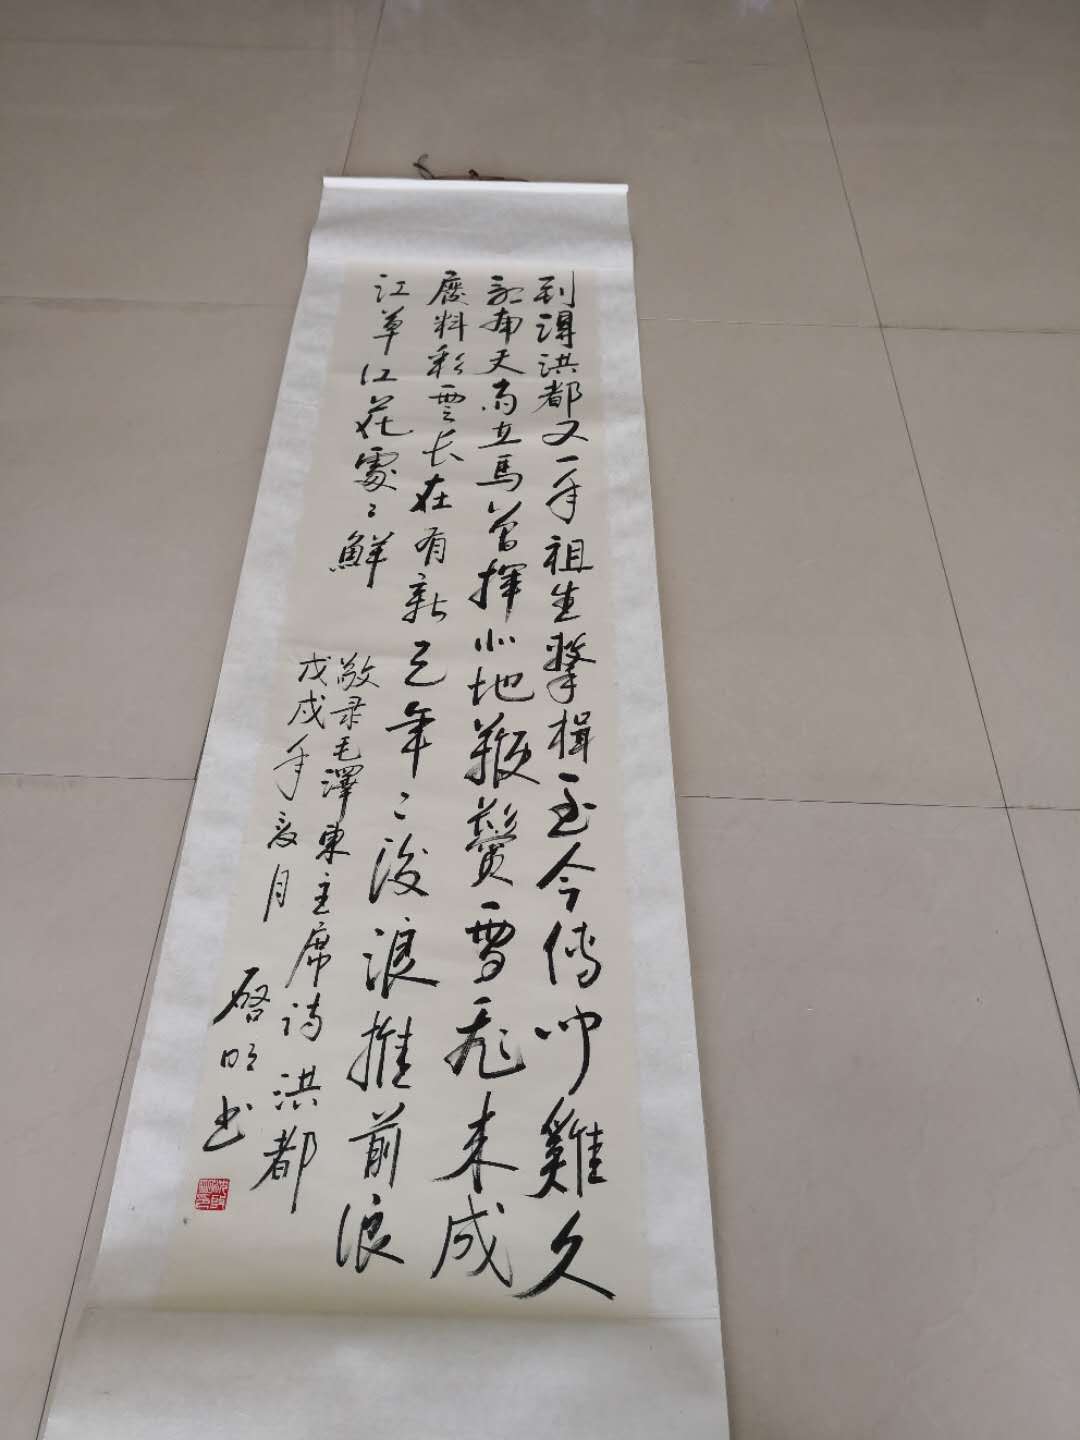 到得洪都又一年祖生擊楫至今传闻雞久
听南天雨立馬曾揮北地鞭鬢雪飛来成
廢料彩雲长在有新天年〻後浪推前浪
江草江花處〻鮮
敬录毛澤東主席诗洪都
戊戌年夏月
啓明书